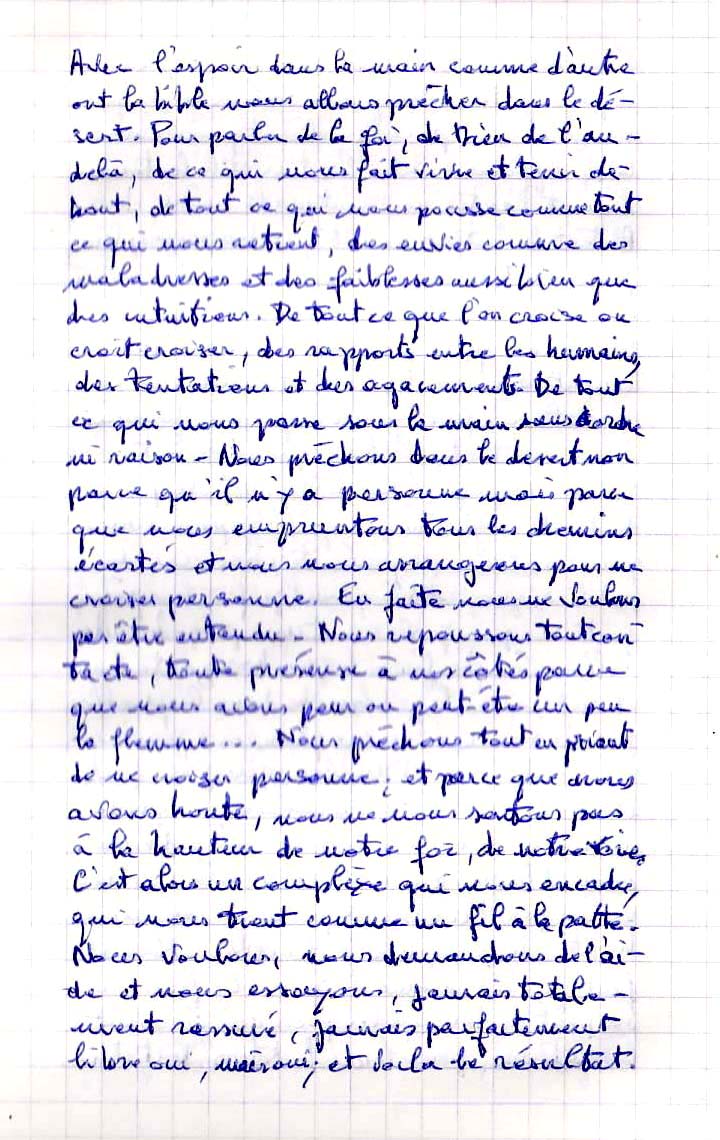 Avec l'espoir dans la main comme d'autre
ont la bible nous allons prêcher dans le dé-
sert. Pour parler de la foi, de Dieu de l'au-
delà, de ce qui nous fait vivre et tenir de
bout, de tout ce qui nous pousse comme tout
ce qui nous retient, des envies comme des
maladresses et des faiblesses aussi bien que
des intuitions. De tout ce que l'on croise ou
croit croiser, des rapports entre les humains,
des tentations et des agacements. De tout
ce qui nous passe sous la main sans ordre
ni raison - Nous prêchons dans le désert non
parce qu'il n'y a personne mais parce
que nous empruntons tous les chemins
écartés et nous nous arrangeons pour ne
croiser personne. En faite nous ne voulons
pas être entendu - Nous repoussons tout con
tacte, toute présense à nos côtés parce
que nous avons peur ou peut-être un peu
la flemme... Nous prêchons tout en priant
de ne croiser personne ; et parce que nous
avons honte, nous ne nous sentons pas
à la hauteur de notre foi, de notre
C'est alors un complèxe qui nous encadre,
qui nous tient comme un fil à la patte.
Nous voulons, nous demandons de l'ai-
de et nous essayons, jamais totale-
ment rassuré, jamais parfaitement
libre oui, mais oui; et voila le résultat.